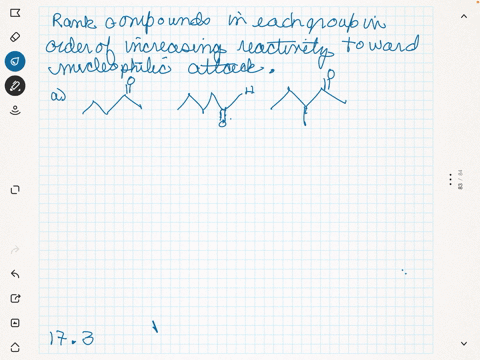 Rank compounds in each group in
order of increasing reactivity toward
nucleophilic attack.
a)
O
H
O
O
17.3